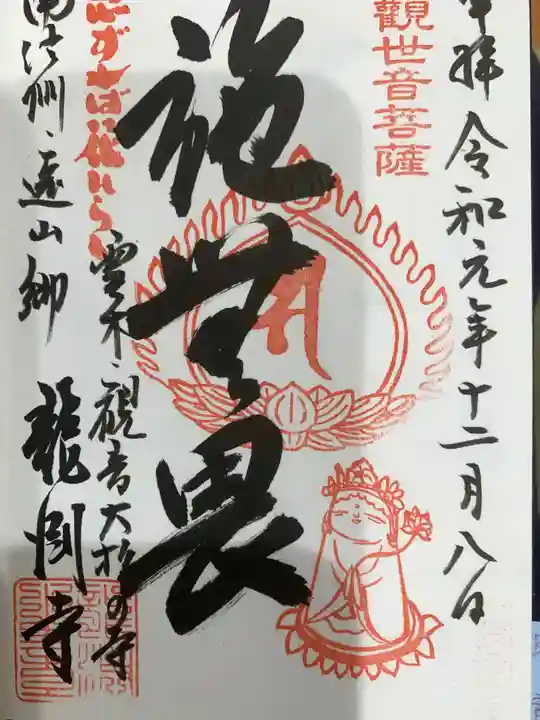 奉拝 令和元年十二月八日
觀世音菩薩
施無畏
霊木観音大杉の寺
念ずれば花ひらく
南信州遠山郷 龍淵寺